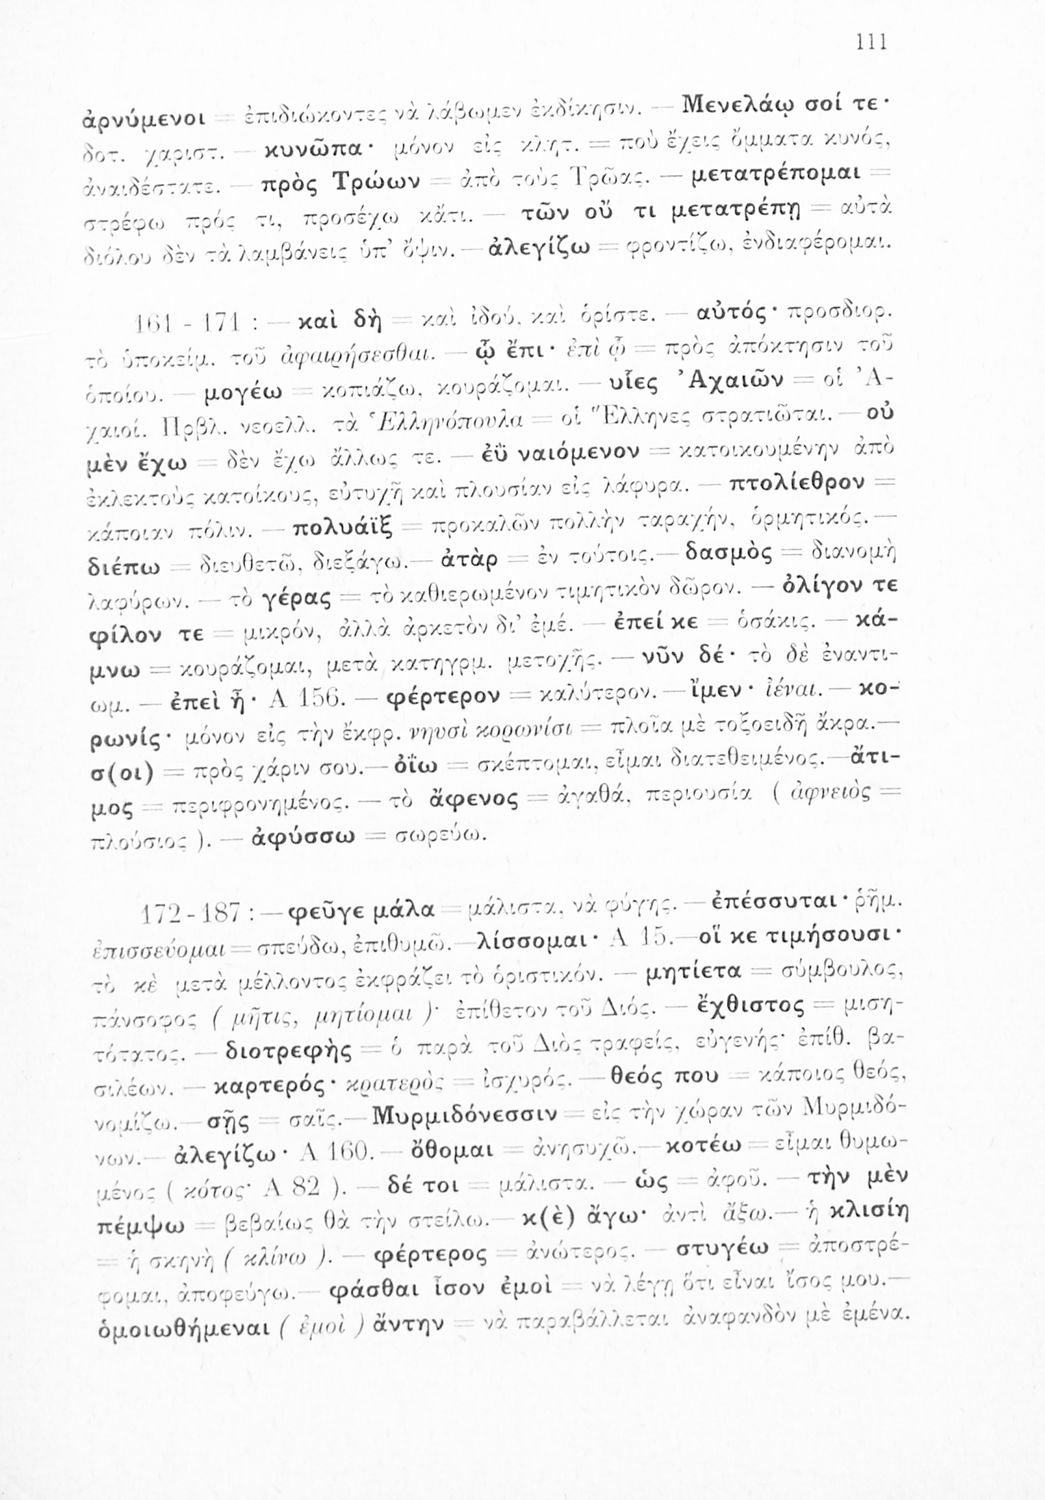 111
ἀρνύμενοι = ἐπιδιώκοντες νὰ λάβωμεν ἐκδίκησιν. — Μενελάῳ σοί τε·
δοτ. χαριστ. — κυνῶπα· μόνον εἰς κλητ. = ποὺ ἔχεις ὄμματα κυνός,
ἀναιδέστατε. — πρὸς Τρώων = ἀπὸ τοὺς Τρῶας. — μετατρέπομαι =
στρέφω πρός τι, προσέχω κάτι. — τῶν οὔ τι μετατρέπῃ = αὐτὰ
διόλου δὲν τὰ λαμβάνεις ὑπ’ ὄψιν. — ἀλεγίζω = φροντίζω, ἐνδιαφέρομαι.
161 - 171 : — καὶ δὴ = καὶ ἰδού, καὶ ὁρίστε. — αὐτός· προσδιορ.
τὸ ὑποκείμ. τοῦ ἀφαιρήσεσθαι. — ᾧ ἔπι· ἐπὶ ᾧ = πρὸς ἀπόκτησιν τοῦ
ὁποίου. — μογέω = κοπιάζω, κουράζομαι. — υἷες Ἀχαιῶν = οἱ Ἀ-
χαιοί. Πρβλ. νεοελλ. τὰ Ἑλληνόπουλα = οἱ Ἕλληνες στρατιῶται. — οὐ
μὲν ἔχω = δὲν ἔχω ἄλλως τε. — ἐῢ ναιόμενον = κατοικουμένην ἀπὸ
ἐκλεκτοὺς κατοίκους, εὐτυχῆ καὶ πλουσίαν εἰς λάφυρα. — πτολίεθρον =
κάποιαν πόλιν. — πολυάϊξ = προκαλῶν πολλὴν ταραχήν, ὁρμητικός. —
διέπω = διευθετῶ, διεξάγω. — ἀτὰρ = ἐν τούτοις. — δασμὸς = διανομὴ
λαφύρων. — τὸ γέρας = τὸ καθιερωμένον τιμητικὸν δῶρον. — ὀλίγον τε
φίλον τε = μικρόν, ἀλλὰ ἀρκετὸν δι’ ἐμέ. — ἐπεί κε = ὁσάκις. — κά-
μνω = κουράζομαι, μετὰ κατηγρμ. μετοχῆς. — νῦν δέ· τὸ δὲ ἐναντι-
ωμ. — ἐπεὶ ἦ· Α 156. — φέρτερον = καλύτερον. — ἴμεν· ἰέναι. — κο-
ρωνίς· μόνον εἰς τὴν ἔκφρ. νηυσὶ κορωνίσι = πλοῖα μὲ τοξοειδῆ ἄκρα. —
σ(οι) = πρὸς χάριν σου. — ὀΐω = σκέπτομαι, εἶμαι διατεθειμένος. — ἄτι-
μος = περιφρονημένος. — τὸ ἄφενος = ἀγαθά, περιουσία ( ἀφνειὸς =
πλούσιος ). — ἀφύσσω = σωρεύω.
172 - 187 : — φεῦγε μάλα = μάλιστα, νὰ φύγῃς. — ἐπέσσυται· ῥῆμ.
ἐπισσεύομαι = σπεύδω, ἐπιθυμῶ. — λίσσομαι· Α 15. — οἵ κε τιμήσουσι·
τὸ κὲ μετὰ μέλλοντος ἐκφράζει τὸ ὁριστικόν. — μητίετα = σύμβουλος,
πάνσοφος ( μῆτις, μητίομαι )· ἐπίθετον τοῦ Διός. — ἔχθιστος = μιση-
τότατος. — διοτρεφὴς = ὁ παρὰ τοῦ Διὸς τραφείς, εὐγενής· ἐπίθ. βα-
σιλέων. — καρτερός· κρατερὸς = ἰσχυρός. — θεός που = κάποιος θεός,
νομίζω. — σῇς = σαῖς. — Μυρμιδόνεσσιν = εἰς τὴν χώραν τῶν Μυρμιδό-
νων. — ἀλεγίζω· Α 160. — ὄθομαι = ἀνησυχῶ. — κοτέω = εἶμαι θυμω-
μένος ( κότος· Α 82 ). — δέ τοι = μάλιστα. — ὡς = ἀφοῦ. — τὴν μὲν
πέμψω = βεβαίως θὰ τὴν στείλω. — κ(ὲ) ἄγω· ἀντὶ ἄξω. — ἡ κλισίη
= ἡ σκηνὴ ( κλίνω ). — φέρτερος = ἀνώτερος. — στυγέω = ἀποστρέ-
φομαι, ἀποφεύγω. — φάσθαι ἶσον ἐμοὶ = νὰ λέγῃ ὅτι εἶναι ἴσος μου. —
ὁμοιωθήμεναι ( ἐμοὶ ) ἄντην = νὰ παραβάλλεται ἀναφανδὸν μὲ ἐμένα.